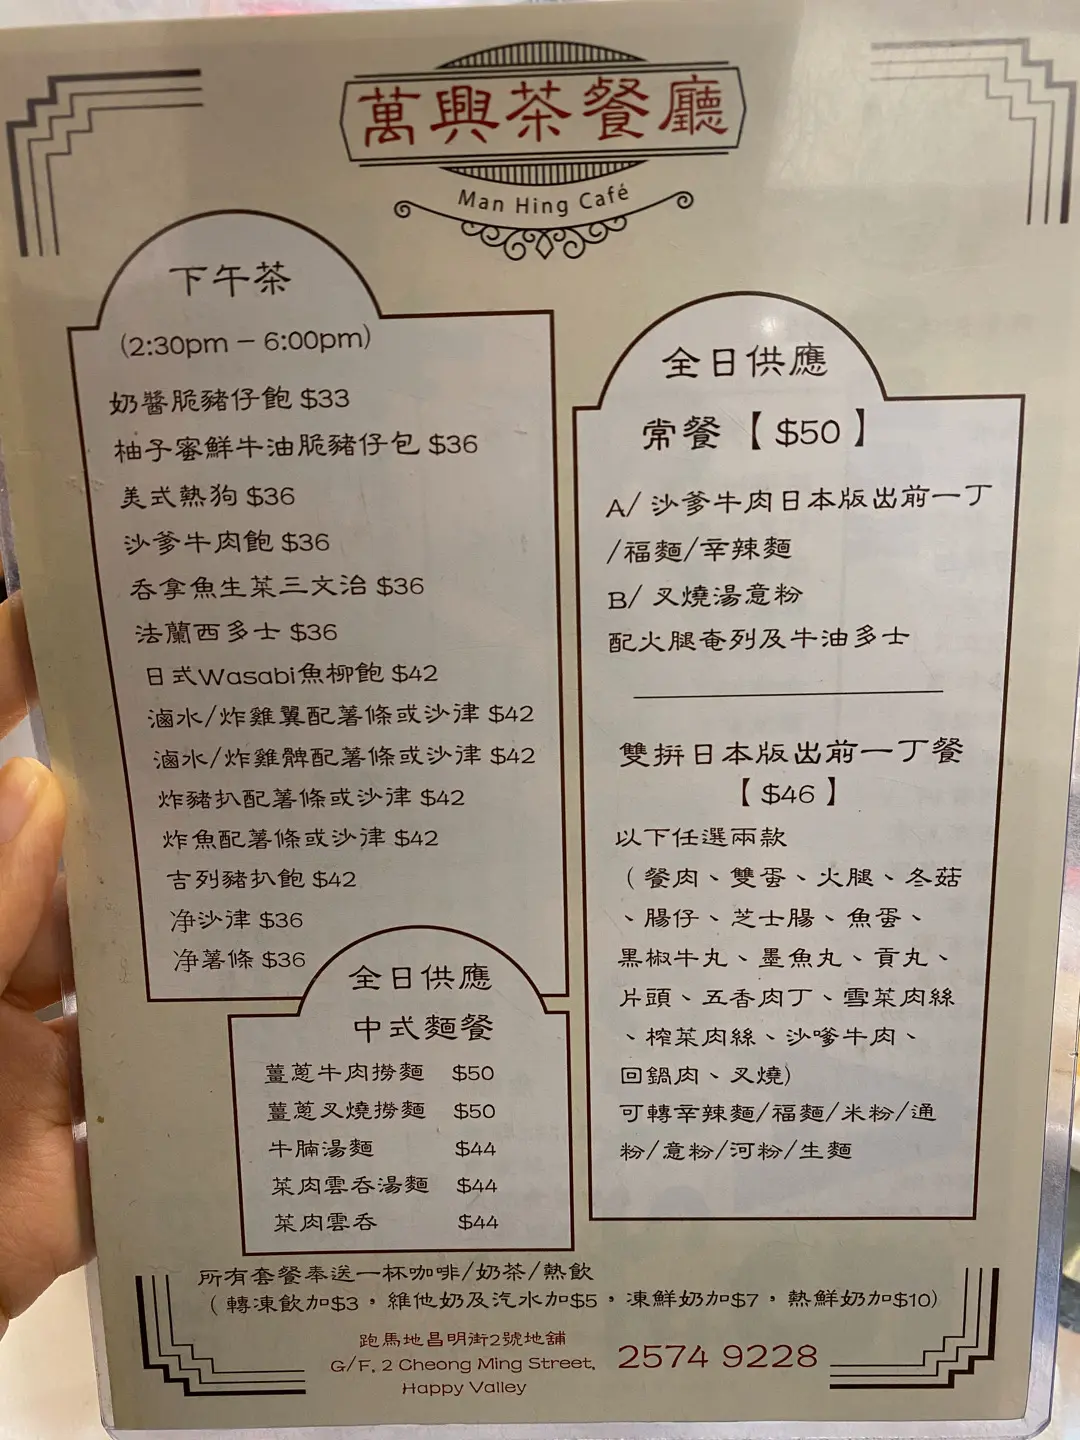 萬興茶餐廳
Man Hing Café
下午茶
(2:30pm – 6:00pm)
奶醬脆豬仔飽 $33
柚子蜜鮮牛油脆豬仔包 $36
美式熱狗 $36
沙爹牛肉飽 $36
吞拿魚生菜三文治 $36
法蘭西多士 $36
日式Wasabi魚柳飽 $42
滷水/炸雞翼配薯條或沙律 $42
滷水/炸雞髀配薯條或沙律 $42
炸豬扒配薯條或沙律 $42
炸魚配薯條或沙律 $42
吉列豬扒飽 $42
净沙律 $36
净薯條 $36
全日供應
中式麵餐
薑蔥牛肉撈麵 $50
薑蔥叉燒撈麵 $50
牛腩湯麵 $44
菜肉雲吞湯麵 $44
菜肉雲吞 $44
全日供應
常餐【 $50 】
A/ 沙爹牛肉日本版出前一丁
/福麵/辛辣麵
B/ 叉燒湯意粉
配火腿奄列及牛油多士
雙拼日本版出前一丁餐
【 $46 】
以下任選兩款
（餐肉、雙蛋、火腿、冬菇
、腸仔、芝士腸、魚蛋、
黑椒牛丸、墨魚丸、貢丸、
片頭、五香肉丁、雪菜肉絲
、榨菜肉絲、沙嗲牛肉、
回鍋肉、叉燒）
可轉辛辣麵/福麵/米粉/通
粉/意粉/河粉/生麵
所有套餐奉送一杯咖啡/奶茶/熱飲
（轉凍飲加$3，維他奶及汽水加$5，凍鮮奶加$7，熱鮮奶加$10）
跑馬地昌明街2號地舖
G/F. 2 Cheong Ming Street,
Happy Valley
2574 9228